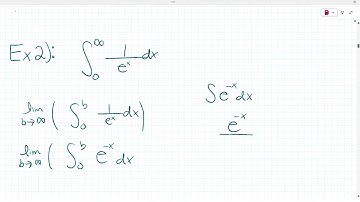 Ex2): ∫₀^∞ 1/eˣ dx
lim b→∞ ( ∫₀ᵇ 1/eˣ dx )
lim b→∞ ( ∫₀ᵇ e⁻ˣ dx
∫ e⁻ˣ dx
e⁻ˣ